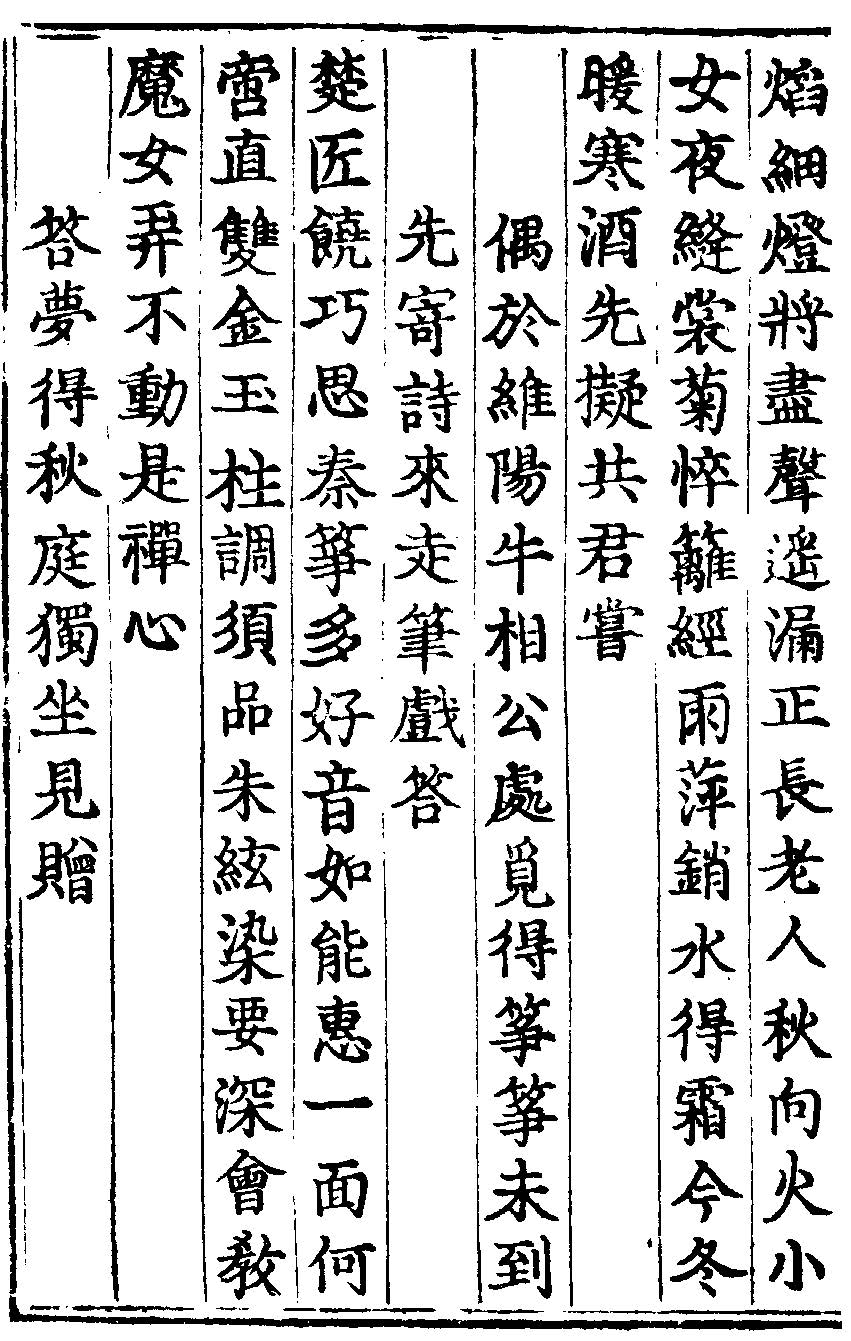 焰細燈將盡聲遥漏正長老人秋向火小
女夜縫裳菊悴籬經雨萍銷水得霜今冬
暖寒酒先擬共君嘗
偶於維陽牛相公處覓得筝筝未到
先寄詩來走筆戲答
楚匠饒巧思秦筝多好音如能惠一面何
啻直雙金玉柱調須品朱絃染要深會敎
魔女弄不動是禪心
答夢得秋庭獨坐見贈